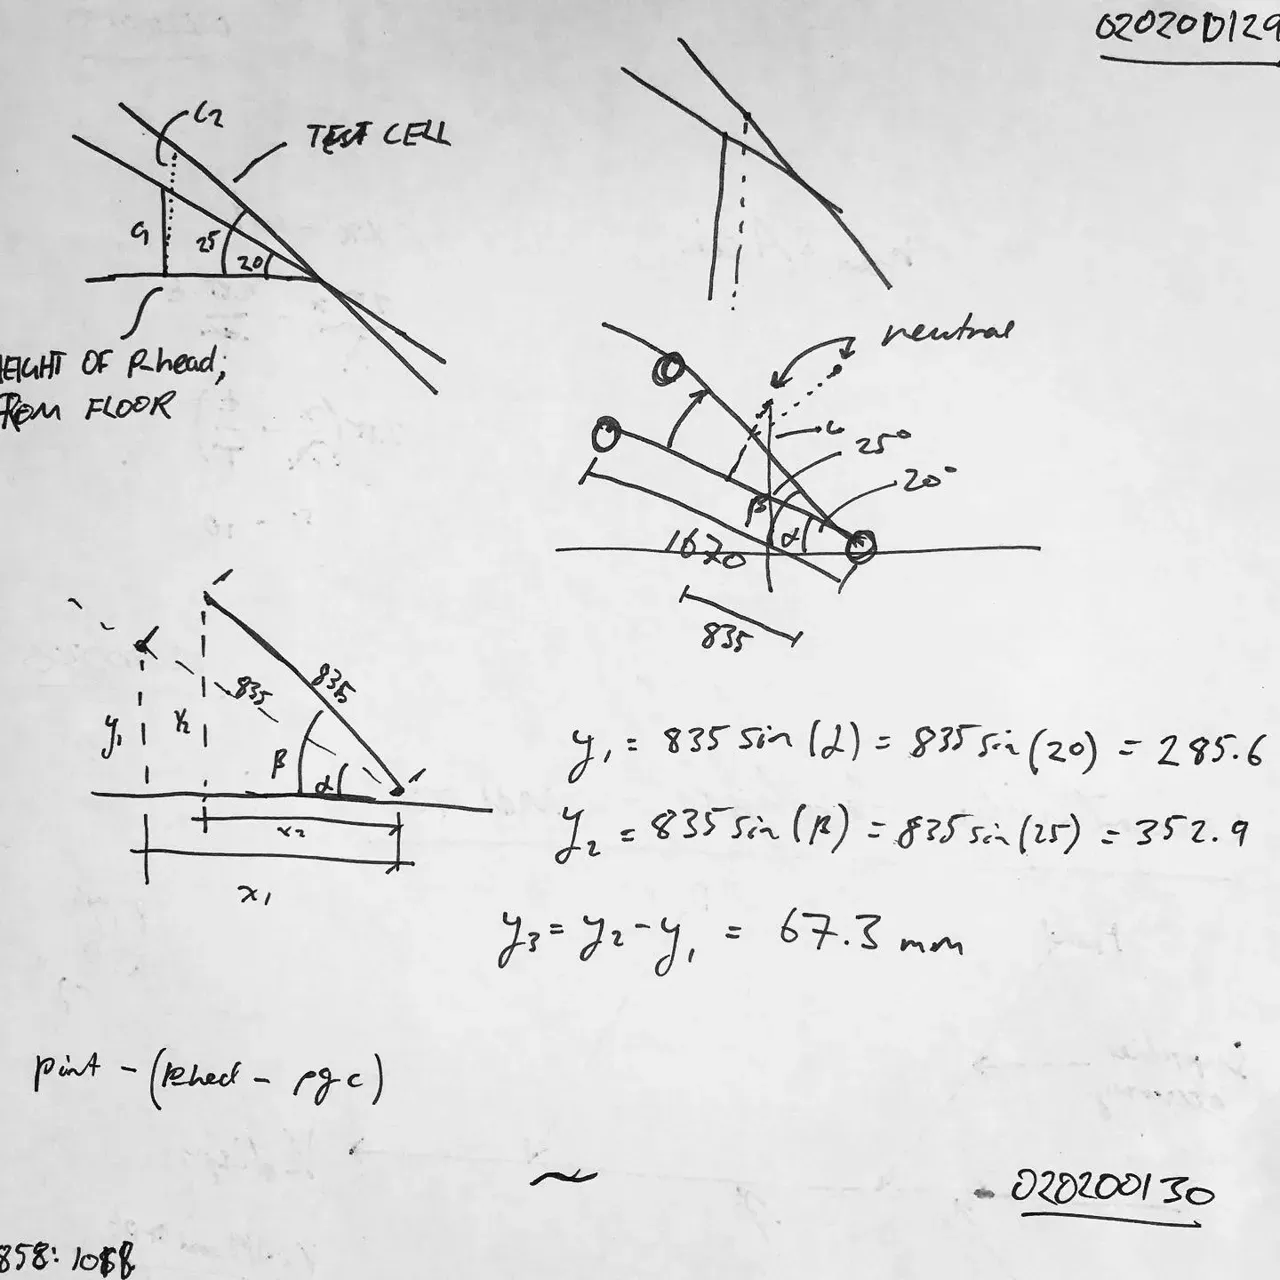 02020D129
L2
TEST CELL
25
20
HEIGHT OF Rhead;
FROM FLOOR
neutral
25°
20°
β
α
1670
835
835
835
y₁
y₂
β
α
x₂
x₁
y₁ = 835 sin (α) = 835 sin (20) = 285.6
y₂ = 835 sin (β) = 835 sin (25) = 352.9
y₃ = y₂ - y₁ = 67.3 mm
pint - (Rhed - ρgc)
~
020200130